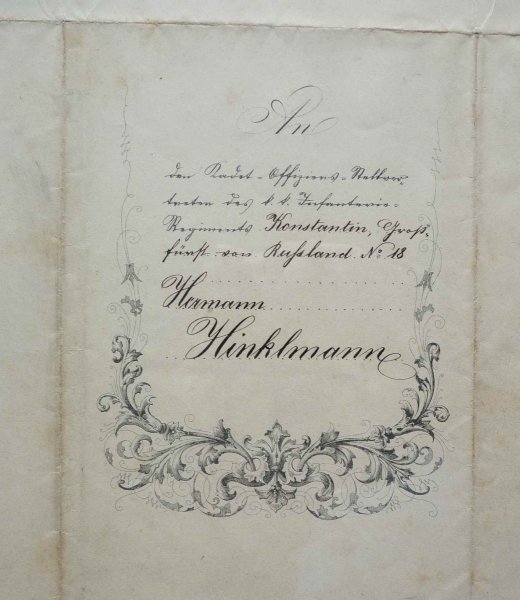 An
den Kadet-Offiziers-Stellver-
treter des k. k. Infanterie-
Regiments Konstantin, Groß-
fürst von Russland. No 18
Hermann
Hinklmann